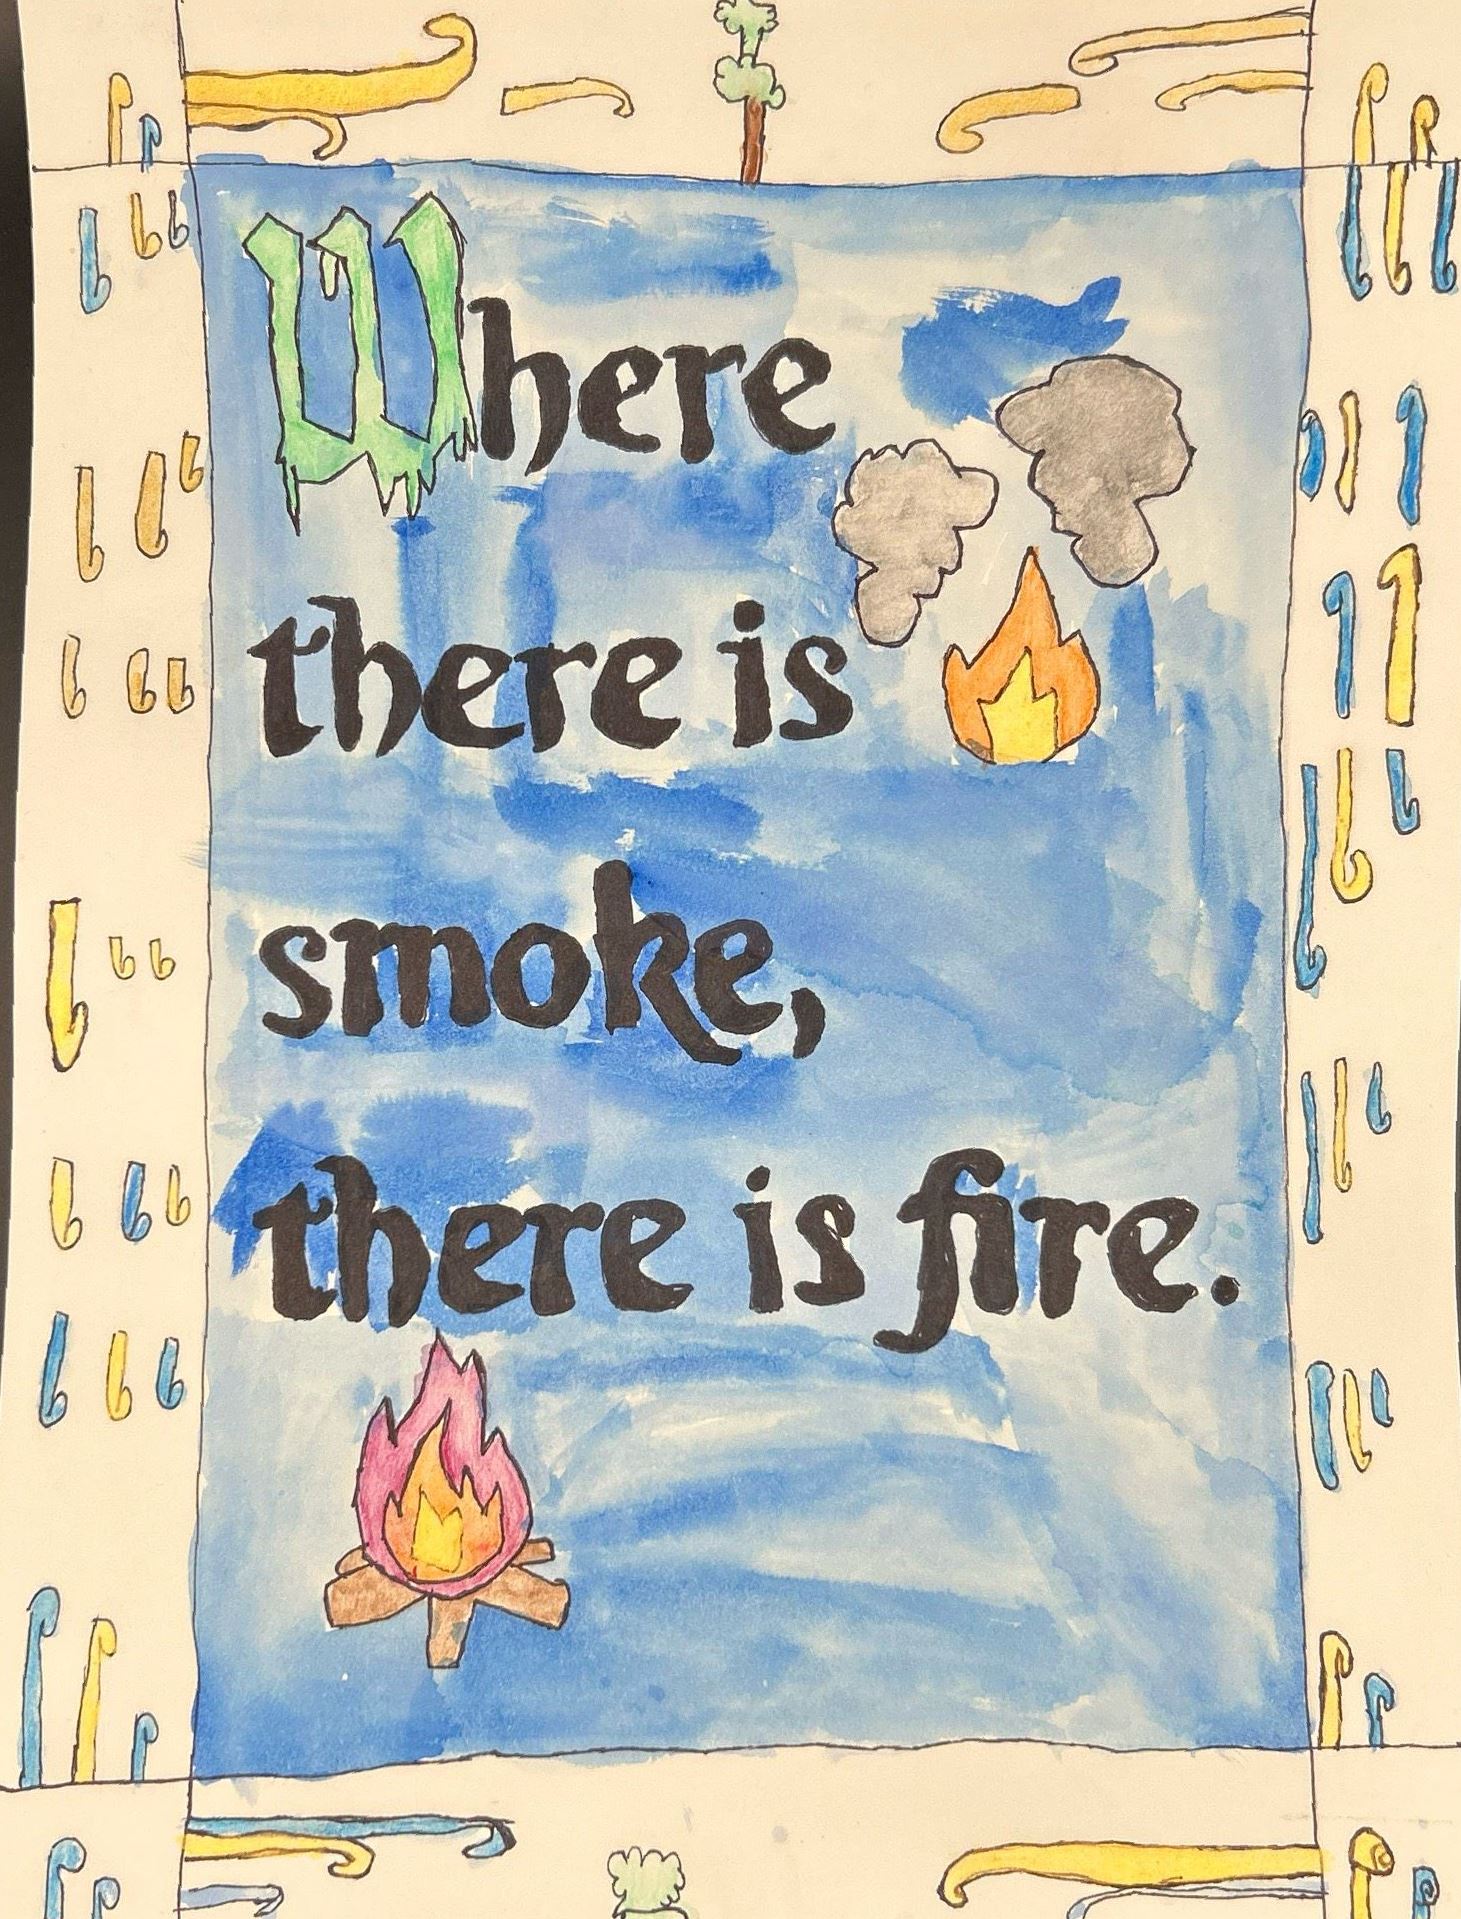 Where
there is
smoke,
there is fire.